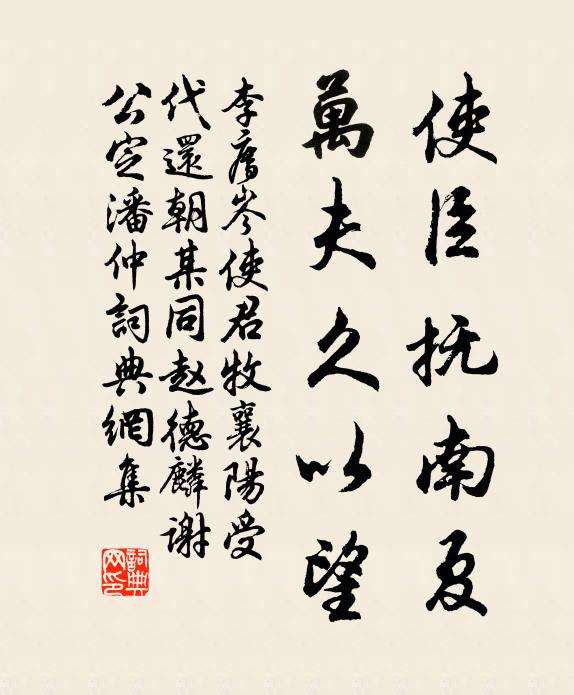 使臣抚南夏
萬夫久以望
李膺岑使君牧襄陽受
代還朝某同赵德麟谢
公定潘仲詞典網集
詞典網印